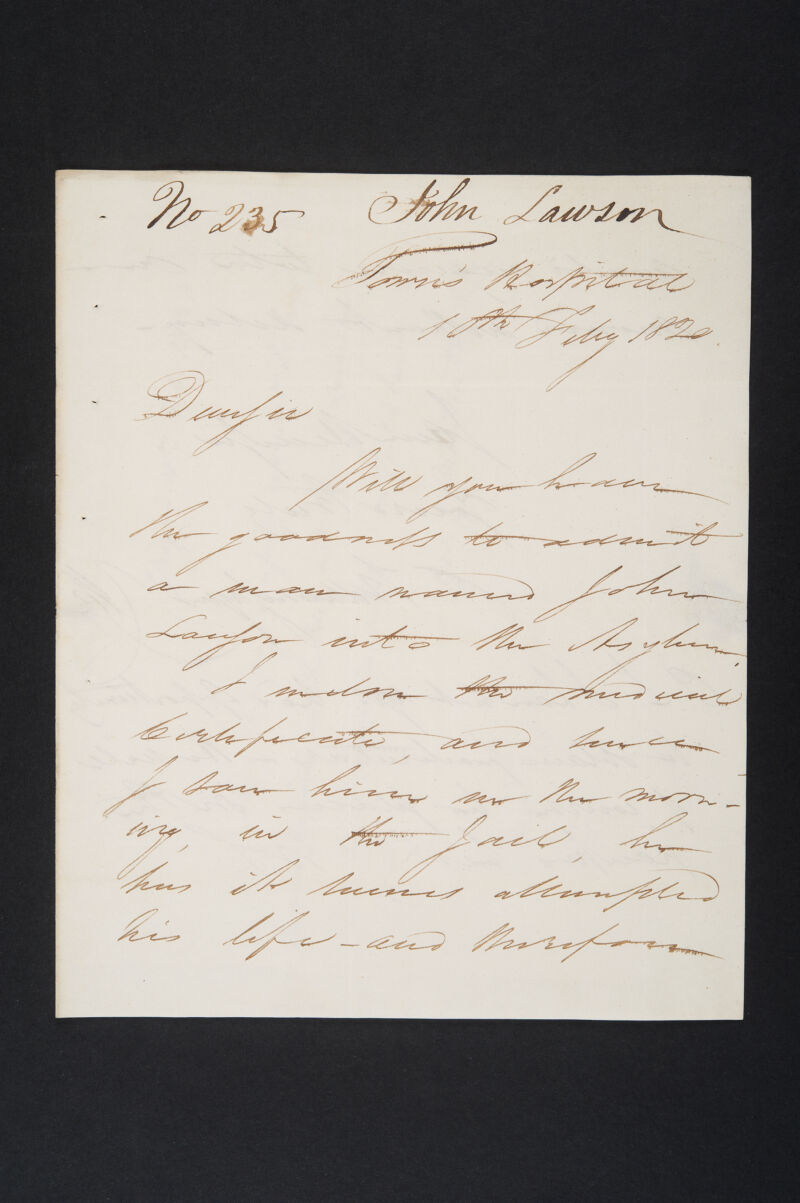 No 235 John Lawson
Town's Hospital
10th Feby 1820.
Dear Sir
Will you have
the goodness to admit
a man named John
Lawson into the Asylum.
I enclose the medical
Certificate, and since
I saw him in the morn-
ing, in the Jail, he
has it seems attempted
his life - and therefore